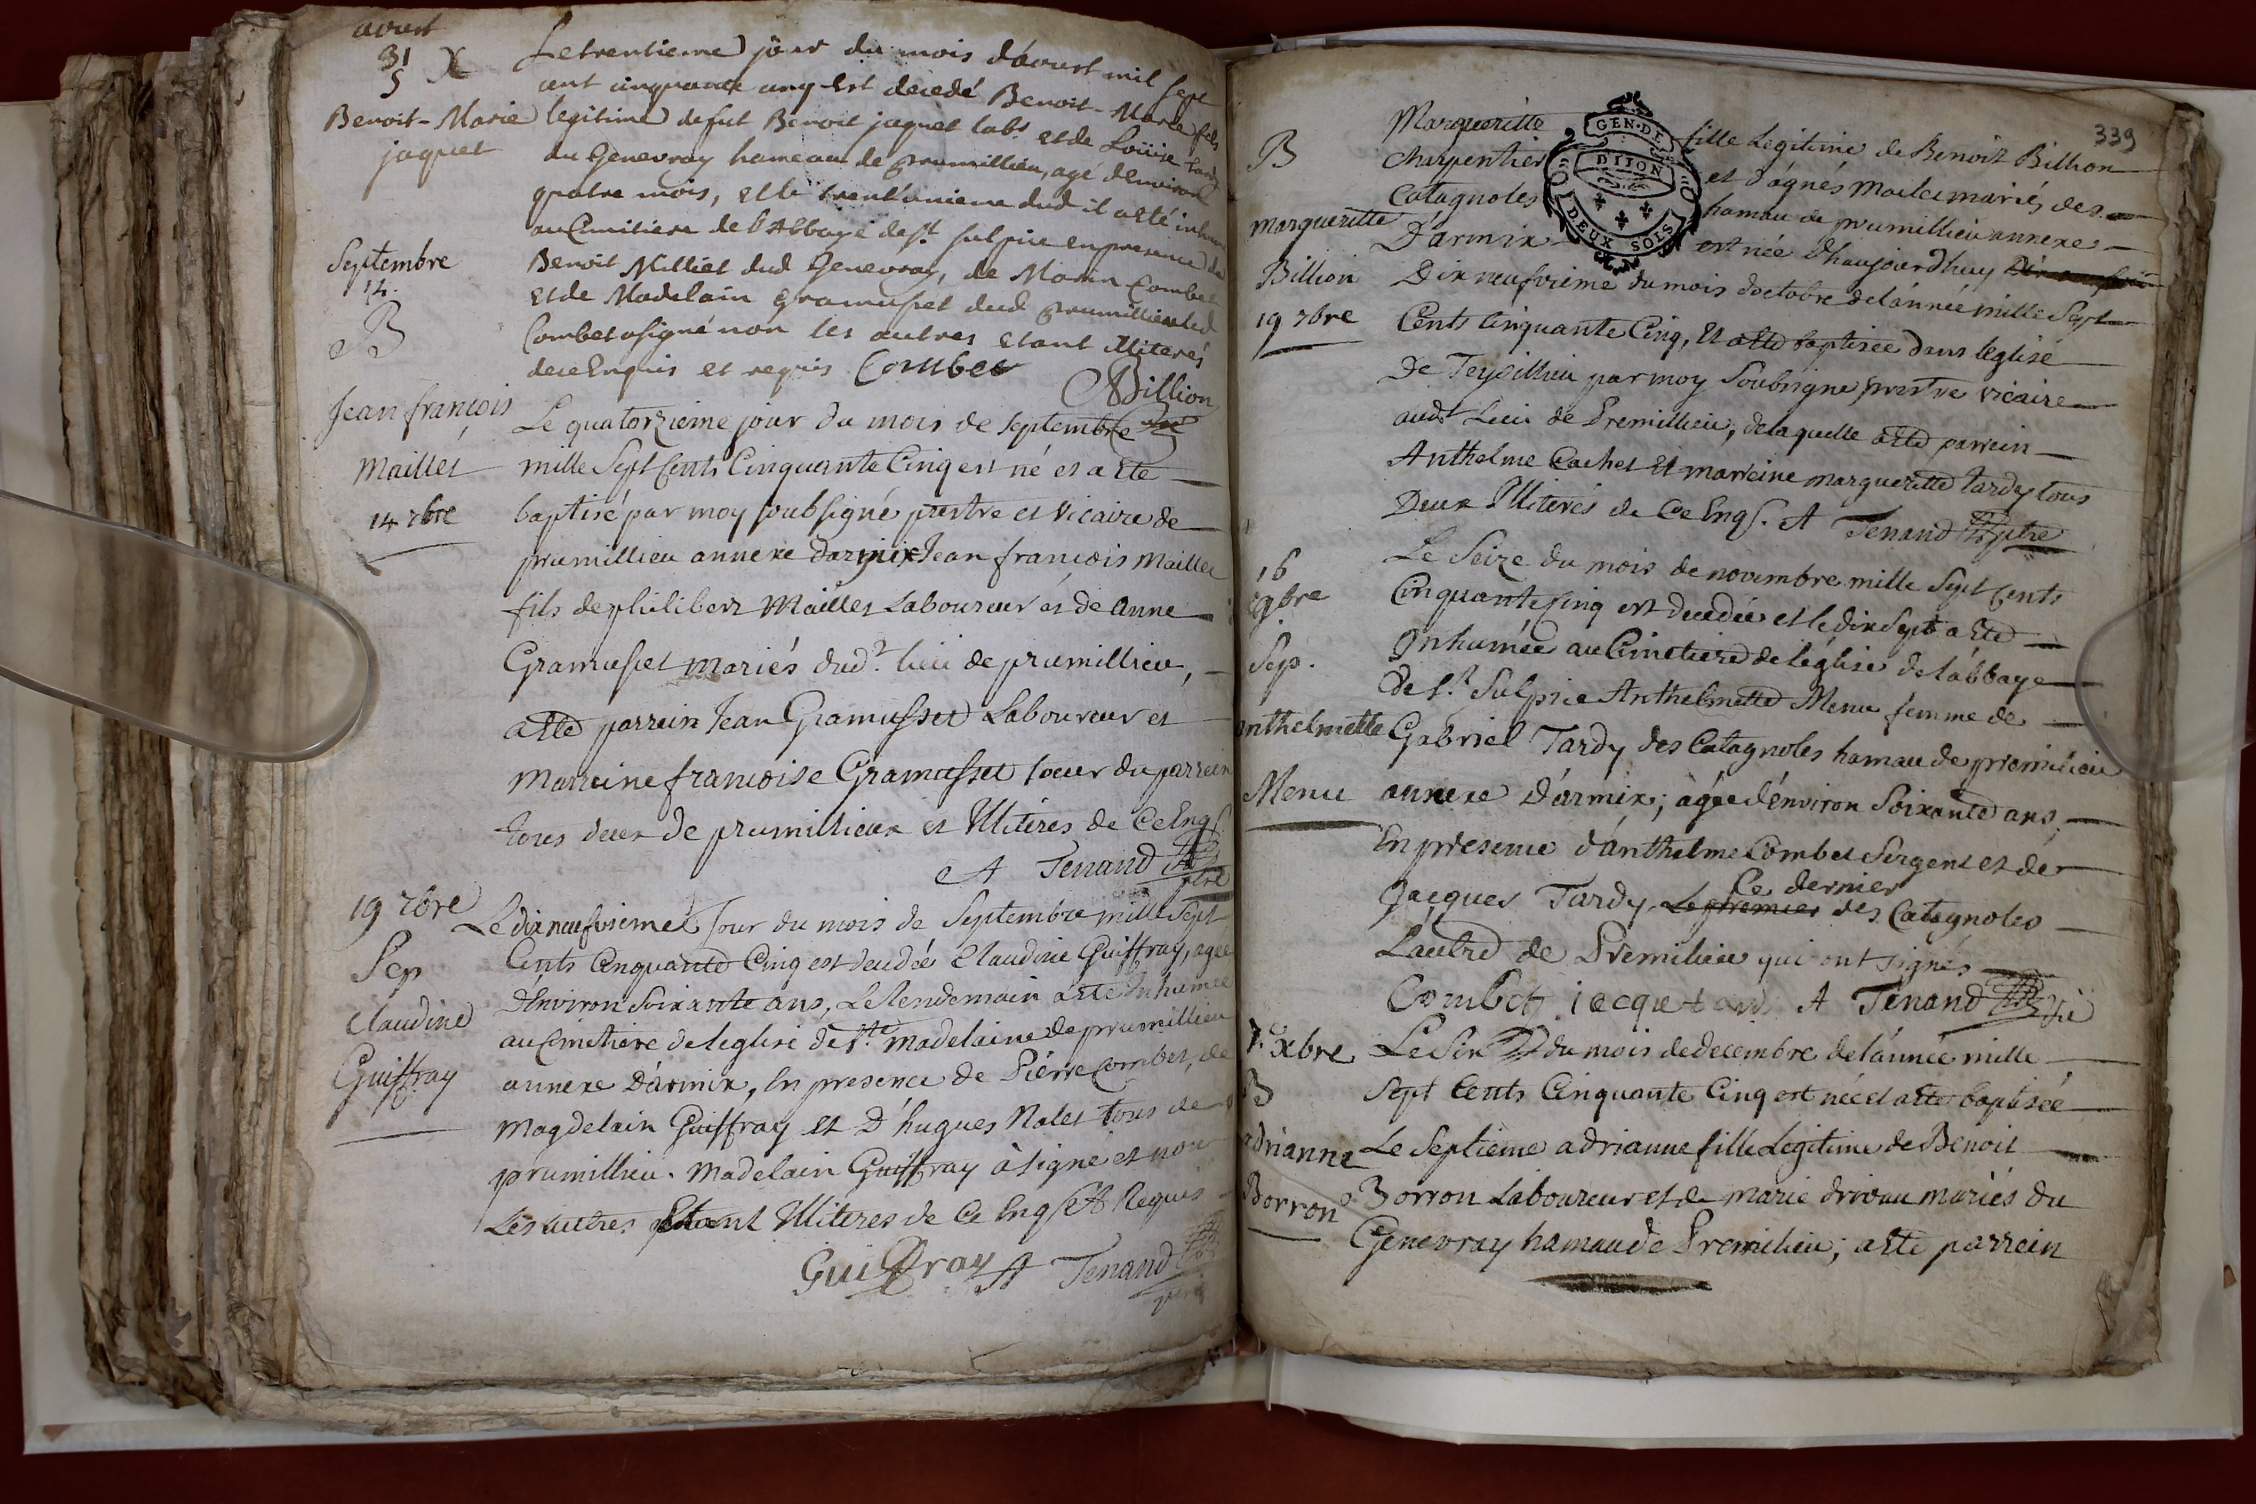 avust
31
S
Benoit-Marie
jaquet
Le trentieme jour du mois d'avust mil sept
cent cinquante cinq est decedé Benoit-Marie fils
legitime de fut Benoit jaquet labr. et de Louise
du Genevray hameau de prumillieu, agé d'environ
quatre mois, et le trent'unieme dud il a eté inhumé
au Cimitiere de l'Abbaye de St. sulpice en presence de
Benoit Milliet dud Genevray, de Marin Combet
et de Madelain gramuset dud prumillieu led
Combet a signé non les autres etant illiterés
de ce Enquis et requis Combet
Billion
Septembre
14.
B
Jean françois
Maillet
14 7bre
Le quatorzieme jour du mois de septembre
mille Sept Cents Cinquante Cinq est né et a Eté
baptisé par moy soubsigné prestre et vicaire de
prumillieu annexe darmix Jean françois Maillet
fils de philibert Maillet Laboureur et de Anne
Gramuset mariés dud.t lieu de prumillieu,
a Eté parrein Jean Gramusset Laboureur et
Marreine francoise Gramusset soeur du parrein
tous deux de prumillieux et Illiteres de Ce Enq
A Tenand ptre
19 7bre
Sep
Claudine
Guiffray
Le dix neufvieme Jour du mois de Septembre mille Sept
Cents Cinquante Cinq est decedée Claudine Guiffray, agée
d'Environ Soixante ans, Le lendemain a eté Inhumée
au Cimetiere de leglise de Ste. Madelaine de prumillieu
annexe D'armix, En presence de Piérre Combet, de
Magdelain Guiffray et D'hugues Nalet tous de
prumillieu. Madelain Guiffray à signé et non
Les autres Etant Illiteres de Ce Enq Et Requis
Guiffray A Tenand
339
GEN. DE
DIJON
DEUX SOLS
B
Margueritte
Billion
19 7bre
Margueritte
Charpentier
Catagnoles
D'armix
fille Legitime de Benoit Billion
et d'agnés Maclet mariés des
hamau de prumillieu annexe
est née d'haujourdhuy
Dix neufvieme du mois doctobre de lánnée mille Sept
Cents Cinquante Cinq, Et a Eté baptisée dans leglise
De Teysillieu par moy Soubsigné prestre vicaire
audt Lieu de Premillieu; de laquelle a Eté parrein
Anthelme Cachet Et marreine margueritte tardy tous
Deux Illiterés de Ce Enq. A Tenand ptre
16
9bre
Sep.
Anthelmette
Menu
Le Seize du mois de novembre mille Sept Cents
Cinquante Cinq est decedée et le dix Sept a Eté
Inhumée au Cimetiere de léglise de lábbaye
de St. Sulpice Anthelmette Menu femme de
Gabriel Tardy des Catagnoles hamau de premilieu
annexe D'armix; agée d'énviron Soixante ans
En presence d'ánthelme Combet Sergent et de
Jacques Tardy Le premier Ce dernier des Catagnoles
Láutre de Premilieu qui ont signés
Combet jacque tardi A Tenand
7. xbre
B
adrianne
Borron
Le Six du mois de decembre de lánnée mille
Sept Cents Cinquante Cinq est née et a Eté baptisée
Le Septieme adrianne fille Legitime de Benoit
Borron Laboureur et de marie drivau mariés du
Genevray hamau de Premilieu; a Eté parrein